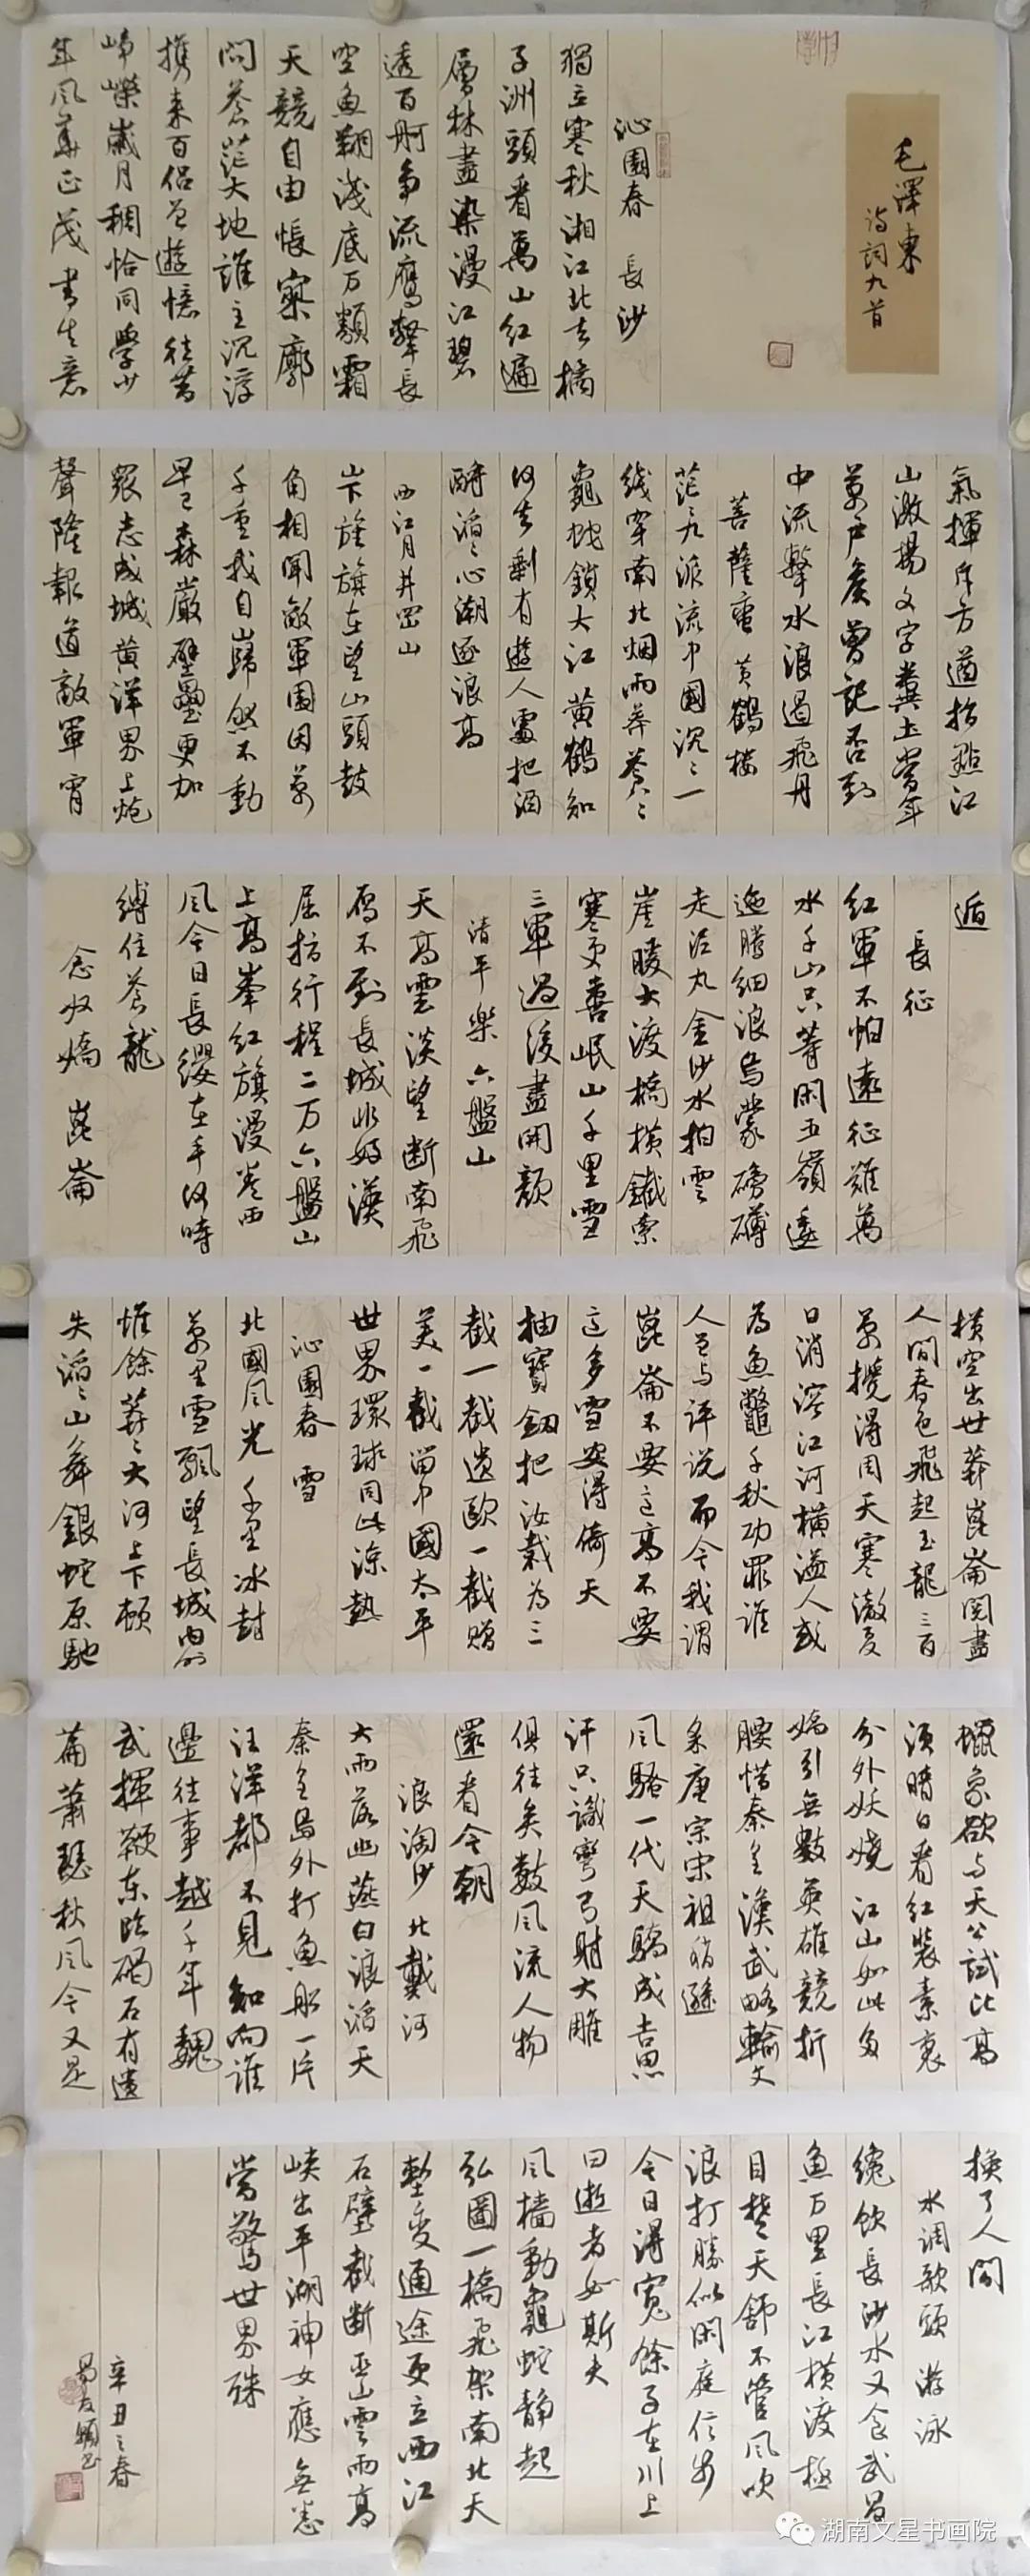 毛澤東
诗詞九首
沁園春 長沙
獨立寒秋湘江北去橘
子洲頭看萬山紅遍
層林盡染漫江碧
透百舸争流鹰擊長
空魚翔淺底万類霜
天競自由悵寥廓
問蒼茫大地誰主沉浮
携来百侣曾遊憶往昔
崢嶸歲月稠恰同學少
年风華正茂書生意
氣揮斥方遒指點江
山激揚文字糞土當年
萬户侯曾記否到
中流擊水浪遏飛舟
菩薩蛮 黄鶴楼
茫茫九派流中國沉沉一
线穿南北烟雨莽蒼蒼
龜蛇鎖大江黄鶴知
何去剩有遊人處把酒
酹滔滔心潮逐浪高
西江月井岡山
山下旌旗在望山頭鼓
角相聞敵軍圍困萬
千重我自巋然不動
早已森嚴壁壘更加
衆志成城黄洋界上炮
聲隆報道敵軍宵
遁
長征
红軍不怕遠征難萬
水千山只等閑五嶺逶
迤騰細浪烏蒙磅礴
走泥丸金沙水拍雲
崖暖大渡橋横鐵索
寒更喜岷山千里雪
三軍過後盡開顔
清平樂 六盤山
天高雲淡望断南飛
雁不到長城非好漢
屈指行程二万六盤山
上高峯红旗漫卷西
风今日長纓在手何時
縛住蒼龍
念奴嬌 崑崙
横空出世莽崑崙閲盡
人間春色飛起玉龍三百
萬攪得周天寒澈夏
日消溶江河横溢人或
為魚鼈千秋功罪誰
人曾与評说而今我謂
崑崙不要这高不要
这多雪安得倚天
抽寶劍把汝裁为三
截一截遗歐一截赠
美一截留中國太平
世界環球同此凉熱
沁園春 雪
北國风光千里冰封
萬里雪飄望長城内外
惟餘莽莽大河上下頓
失滔滔山舞銀蛇原馳
蠟象欲与天公試比高
須晴日看红装素裹
分外妖嬈江山如此多
嬌引無數英雄競折
腰惜秦皇漢武略輸文
采唐宗宋祖稍遜
风騷一代天驕成吉思
汗只識彎弓射大雕
俱往矣數风流人物
還看今朝
浪淘沙 北戴河
大雨落幽燕白浪滔天
秦皇島外打魚船一片
汪洋都不見知向誰
邊往事越千年魏
武揮鞭东临碣石有遗
篇蕭瑟秋风今又是
换了人間
水调歌頭 游泳
纔飲長沙水又食武昌
魚万里長江横渡極
目楚天舒不管风吹
浪打勝似閑庭信步
今日得寬餘子在川上
曰逝者如斯夫
风檣動龜蛇静起
弘圖一橋飛架南北天
塹变通途更立西江
石壁截断巫山雲雨高
峡出平湖神女應無恙
當驚世界殊
辛丑之春
湖南文星书画院